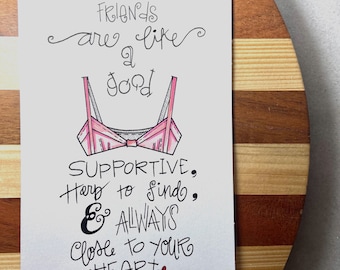 FRIENDS
are like
a
good
SUPPORTIVE,
Hard to find,
& ALWAYS
Close to YOUR
HEART